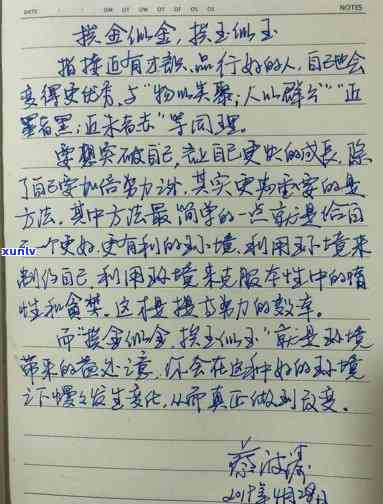 DATE
NOTES
挨金似金，挨玉似玉
指接近有才识、品行好的人，自己也会
变得更优秀，与“物以类聚；人以群分”“近
墨者黑；近朱者赤”学同理。
要想突破自己，让自己更快的成长，除
了自己要加倍努力外，其实更为重要的是
方法，其中方法最简单的一点就是给自
己一个更好、更有利的环境，利用环境来
制约自己，利用环境来克服本性中的惰
性和贪婪，这才是提高努力的效率。
而“挨金似金，挨玉似玉”就是环境
带来的，你会在这种好的环境
之下慢慢发生变化，从而真正做到改变。
蔡波
年4月28日
xunlv